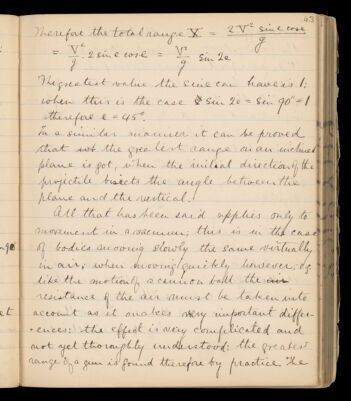 43
Therefore the total range X = 2V² sin e cos e / g
= V²/g 2 sin e cos e = V²/g sin 2e
The greatest value the sine can have is 1;
when this is the case sin 2e = sin 90° = 1
therefore e = 45°.
In a similar manner it can be proved
that the greatest range on an inclined
plane is got, when the initial direction of the
projectile bisects the angle between the
plane and the vertical.
All that has been said applies only to
movement in a vacuum; this is in the case
of bodies moving slowly the same virtually
in air; when moving quickly however, eg.
like the motion of a cannon ball the air
resistance of the air must be taken into
account as it makes very important differ-
-ences: the effect is very complicated and
not yet thoroughly understood: the greatest
range of a gun is found therefore by practice. The